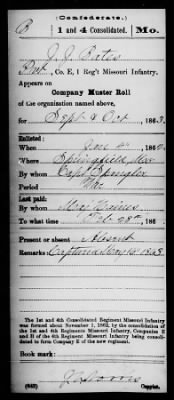 (Confederate.)
B 1 and 4 Consolidated. Mo.
J. J. Bates
Pvt., Co. E, 1 Reg't Missouri Infantry.
Appears on
Company Muster Roll
of the organization named above,
for Sept & Oct, 1863.
Enlisted:
When 186
Where Springfield, Mo
By whom Capt
Period War
Last paid:
By whom Maj
To what time Feb 28", 186
Present or absent Absent
Remarks: Captured May 1863
The 1st and 4th Consolidated Regiment Missouri Infantry
was formed about November 1, 1862, by the consolidation of
the 1st and 4th Regiments Missouri Infantry, Companies E
and H of the 4th Regiment Missouri Infantry being consolidated
to form Company E of the new regiment.
Book mark:
(642) Copyist.